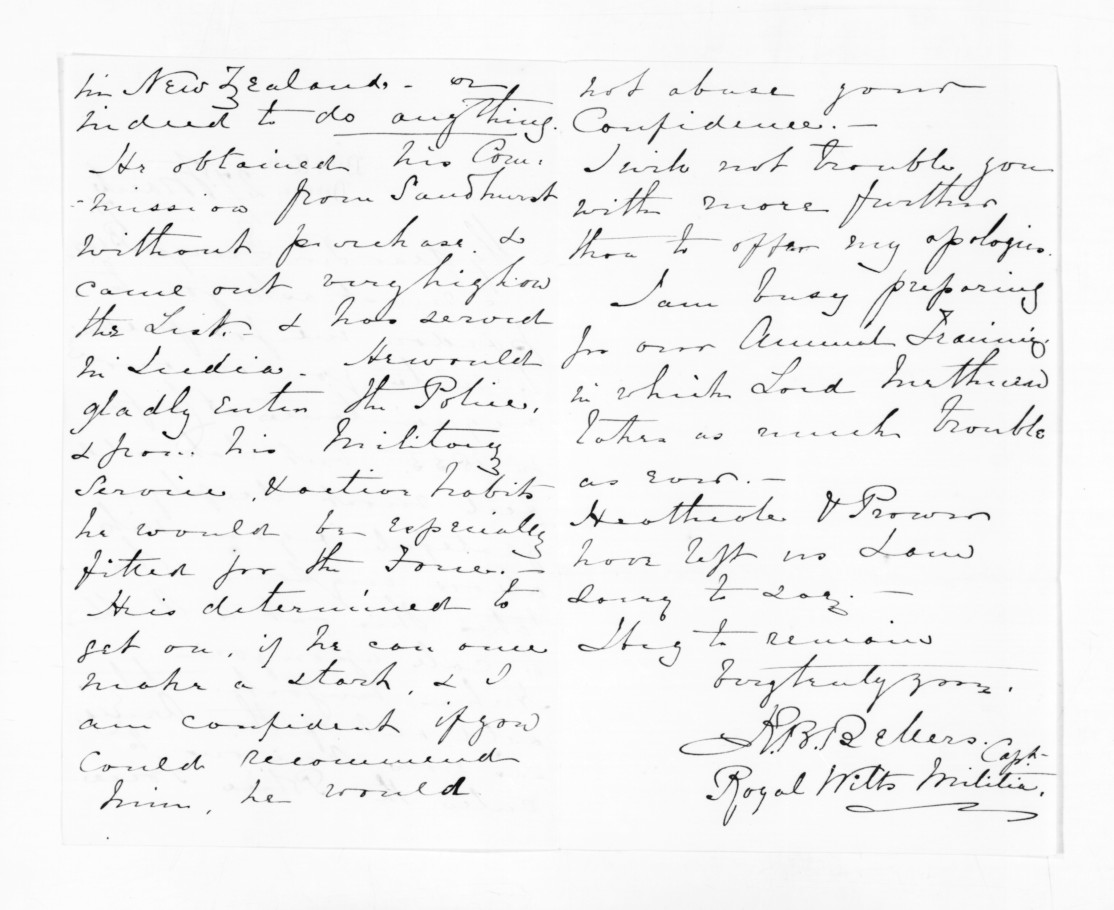 in New Zealand - or
indeed to do anything.
He obtained his Com:
-mission from Sandhurst
without purchase. &
came out very high on
the List - & has served
in India. He would
gladly enter the Police,
& from his Military
Service, & active habits
he would be especially
fitted for the Force. -
He is determined to
get on, if he can once
make a start, & I
am confident if you
could recommend
him, he would
not abuse your
Confidence. -
I will not trouble you
with more further
than to offer my apologies.
I am busy preparing
for our Annual Training.
in which Lord Methuen
takes as much trouble
as ever. -
Heathcote & Prower
have left us I am
sorry to say. -
I beg to remain
very truly yours.
Capt.
Royal Wilts Militia.